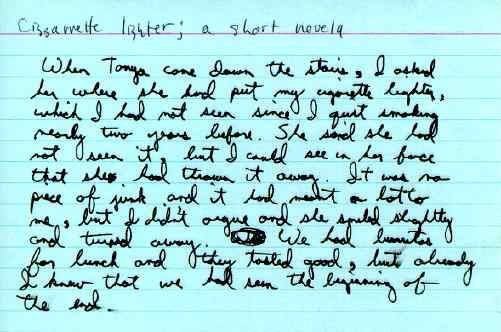 Cizzarette lighter; a short novela
When Tonya came down the stairs, I asked
her where she had put my cigarette lighter,
which I had not seen since I quit smoking
nearly two years before. She said she had
not seen it, but I could see in her face
that she had thrown it away. It was no
piece of junk and it had meant a lot to
me, but I didn't argue and she smiled slightly
and turned away. We had burritos
for lunch and they tasted good, but already
I knew that we had seen the beginning of
the end.